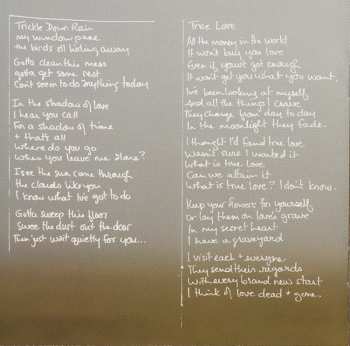 Trickle Down Rain
my window pane
the birds all hiding away
Gotta clean this mess
gotta get some rest
Can't seem to do anything today
In the shadow of love
I hear you call
For a shadow of time
+ that's all
Where do you go
When you leave me alone?
I see the sun come through
the clouds like you
I know what I've got to do
Gotta sweep this floor
Sweep the dust out the door
Then just wait quietly for you...
True Love
All the money in the world
It won't buy you love
Even if you've got enough
It won't get you what you want.
I've been looking at myself
And all the things I crave
They change from day to day
In the moonlight they fade.
I thought I'd found true love
Wasn't sure I wanted it
What is true love
Can we attain it
What is true love? I don't know.
Keep your flowers for yourself
Or lay them on love's grave
In my secret heart
I have a graveyard
I visit each + everyone
They send their regards
With every brand new start
I think of love dead + gone.